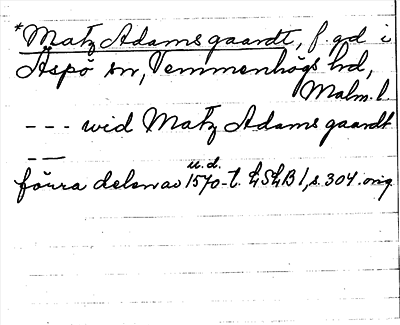 *Matz Adams gaardt, f. gd i
Äspö sn, Vemmenhögs hd,
Malm. l
--- wid Matz Adams gaardt
---
u. d.
förra delen av 1570-t. LSLB 1, s. 304. orig